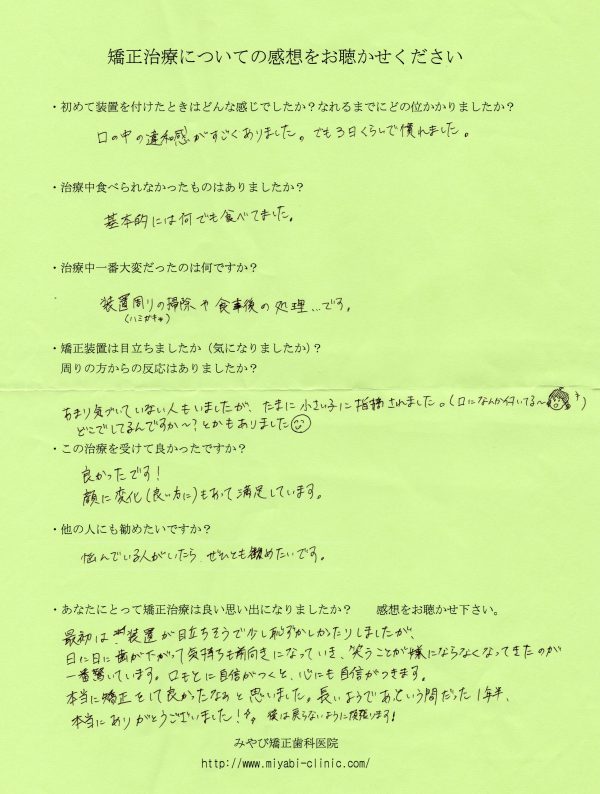 矯正治療についての感想をお聴かせください
・初めて装置を付けたときはどんな感じでしたか？なれるまでにどの位かかりましたか？
口の中の違和感がすごくありました。でも3日くらいで慣れました。
・治療中食べられなかったものはありましたか？
基本的には何でも食べてました。
・治療中一番大変だったのは何ですか？
装置周りの掃除や食事後の処理…です。
(ハミガキ)
・矯正装置は目立ちましたか（気になりましたか）？
周りの方からの反応はありましたか？
あまり気づいていない人もいましたが、たまに小さい子に指摘されました。(口になんか付いてる〜)
どこでしてるんですか〜？とかもありました
・この治療を受けて良かったですか？
良かったです！
顔に変化(良い方に)もあって満足しています。
・他の人にも勧めたいですか？
悩んでいる人がいたら、ぜひとも勧めたいです。
・あなたにとって矯正治療は良い思い出になりましたか？　感想をお聴かせ下さい。
最初は装置が目立ちそうで少し恥ずかしかったりしましたが、
日に日に歯が下がって気持ちも前向きになっていき、笑うことが嫌にならなくなってきたのが
一番驚いています。口もとに自信がつくと、心にも自信がつきます。
本当に矯正をして良かったなぁと思いました。長いようであっという間だった1年半、
本当にありがとうございました！後は戻らないように頑張ります！
みやび矯正歯科医院
http://www.miyabi-clinic.com/